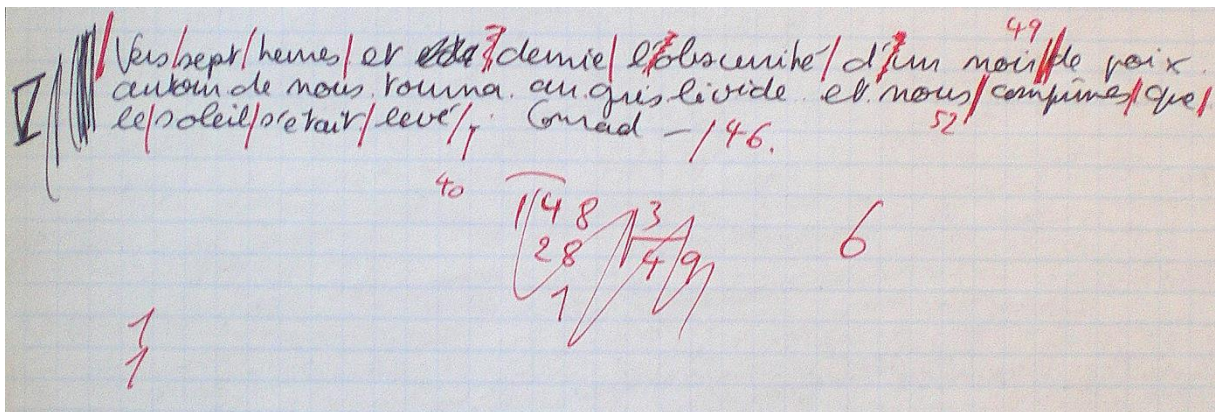 49
V Vers/sept/heures/et demie/ l'obscurité/d'un noir/de poix
autour de nous tourna au gris livide et nous/comprîmes/que/
le/soleil/s'était/levé/, Conrad - /46.
52
40
148 3
28 49
1
6
1
1